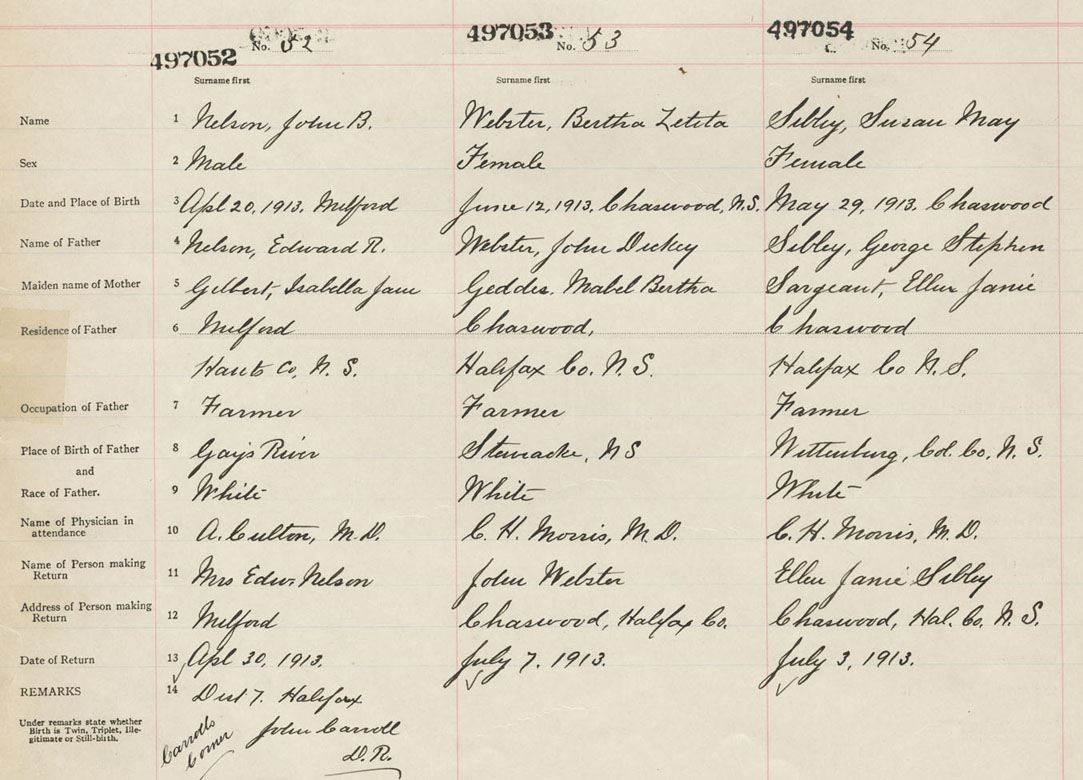 497052 No. 52 497053 No. 53 497054 No. 54
Surname first Surname first Surname first
Name 1 Nelson, John B. Webster, Bertha Letita Sibley, Susan May
Sex 2 Male Female Female
Date and Place of Birth 3 Apl 20, 1913. Milford June 12, 1913, Chaswood, N.S. May 29, 1913. Chaswood
Name of Father 4 Nelson, Edward R. Webster, John Dickey Sibley, George Stephen
Maiden name of Mother 5 Gilbert, Isabella Jane Geddes. Mabel Bertha Sargeant, Ellen Janie
Residence of Father 6 Milford Chaswood, Chaswood
Hants Co, N. S. Halifax Co. N. S. Halifax Co N. S.
Occupation of Father 7 Farmer Farmer Farmer
Place of Birth of Father 8 Gays River Stewiacke, NS Wittenburg, Col. Co. N. S.
and
Race of Father. 9 White White White
Name of Physician in
attendance 10 A. Culton, M.D. C. H. Morris, M. D. C. H. Morris, M. D.
Name of Person making
Return 11 Mrs Edw. Nelson John Webster Ellen Janie Sibley
Address of Person making
Return 12 Milford Chaswood, Halifax Co. Chaswood, Hal. Co. N. S.
Date of Return 13 Apl 30, 1913. July 7, 1913. July 3, 1913.
REMARKS 14 Dist 7. Halifax
Under remarks state whether
Birth is Twin, Triplet, Ille-
gitimate or Still-birth.
Carrolls
Corner
John Carroll
D. R.